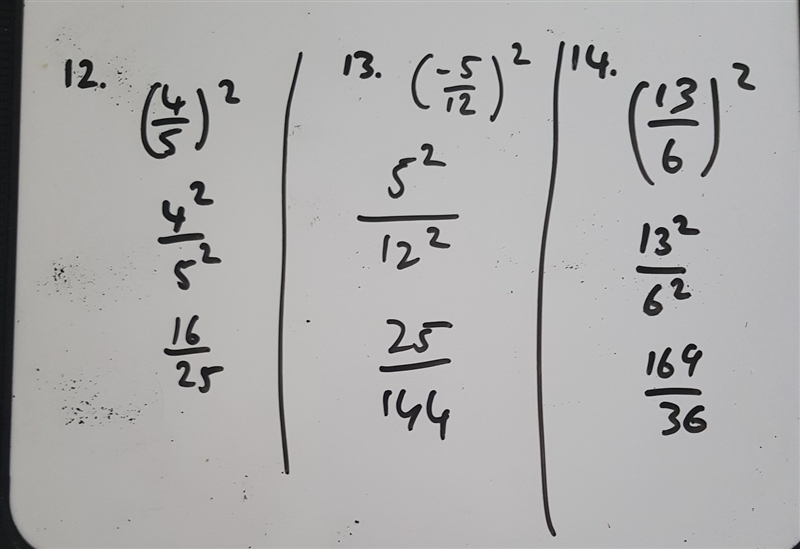 12.
(4/5)²
4²/5²
16/25
13. (-5/12)²
5²/12²
25/144
14.
(13/6)²
13²/6²
169/36